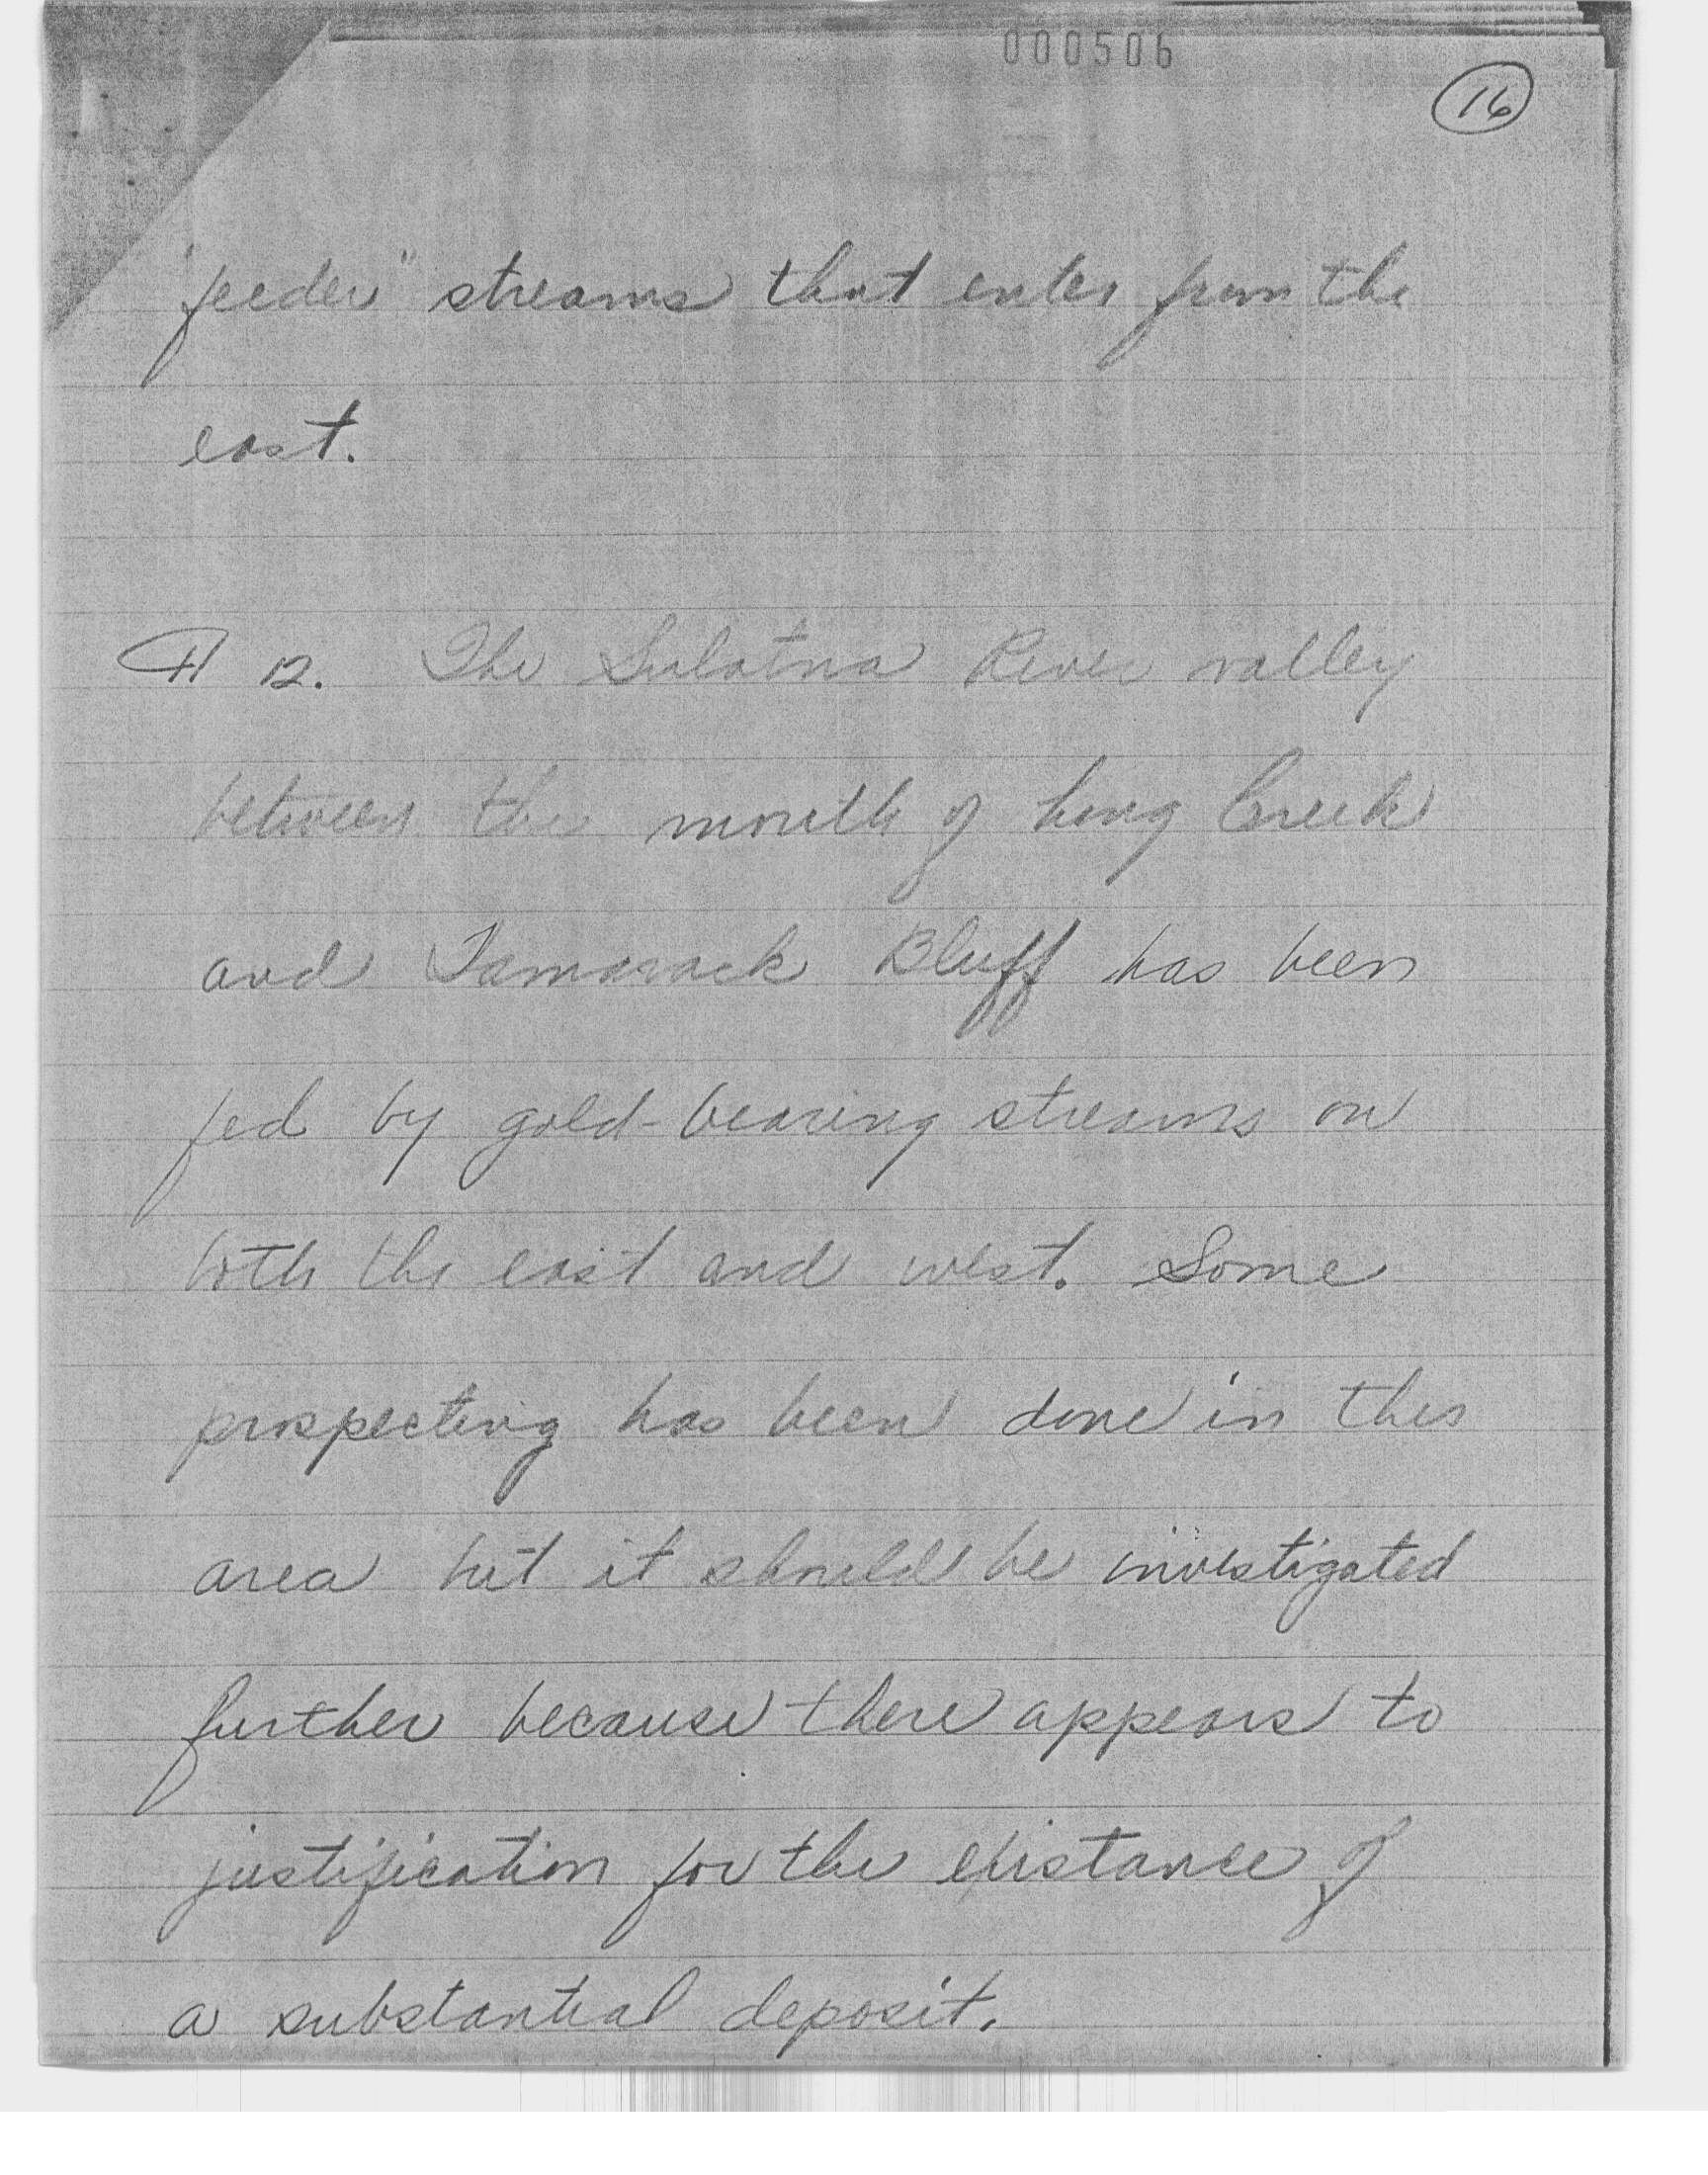 000506
16
"feeder" streams that enter from the
east.
¶ 12. The Sulatna River valley
between the mouth of Long Creek
and Tamarack Bluff has been
fed by gold-bearing streams on
both the east and west. Some
prospecting has been done in this
area but it should be investigated
further because there appears to
justification for the existance of
a substantial deposit.